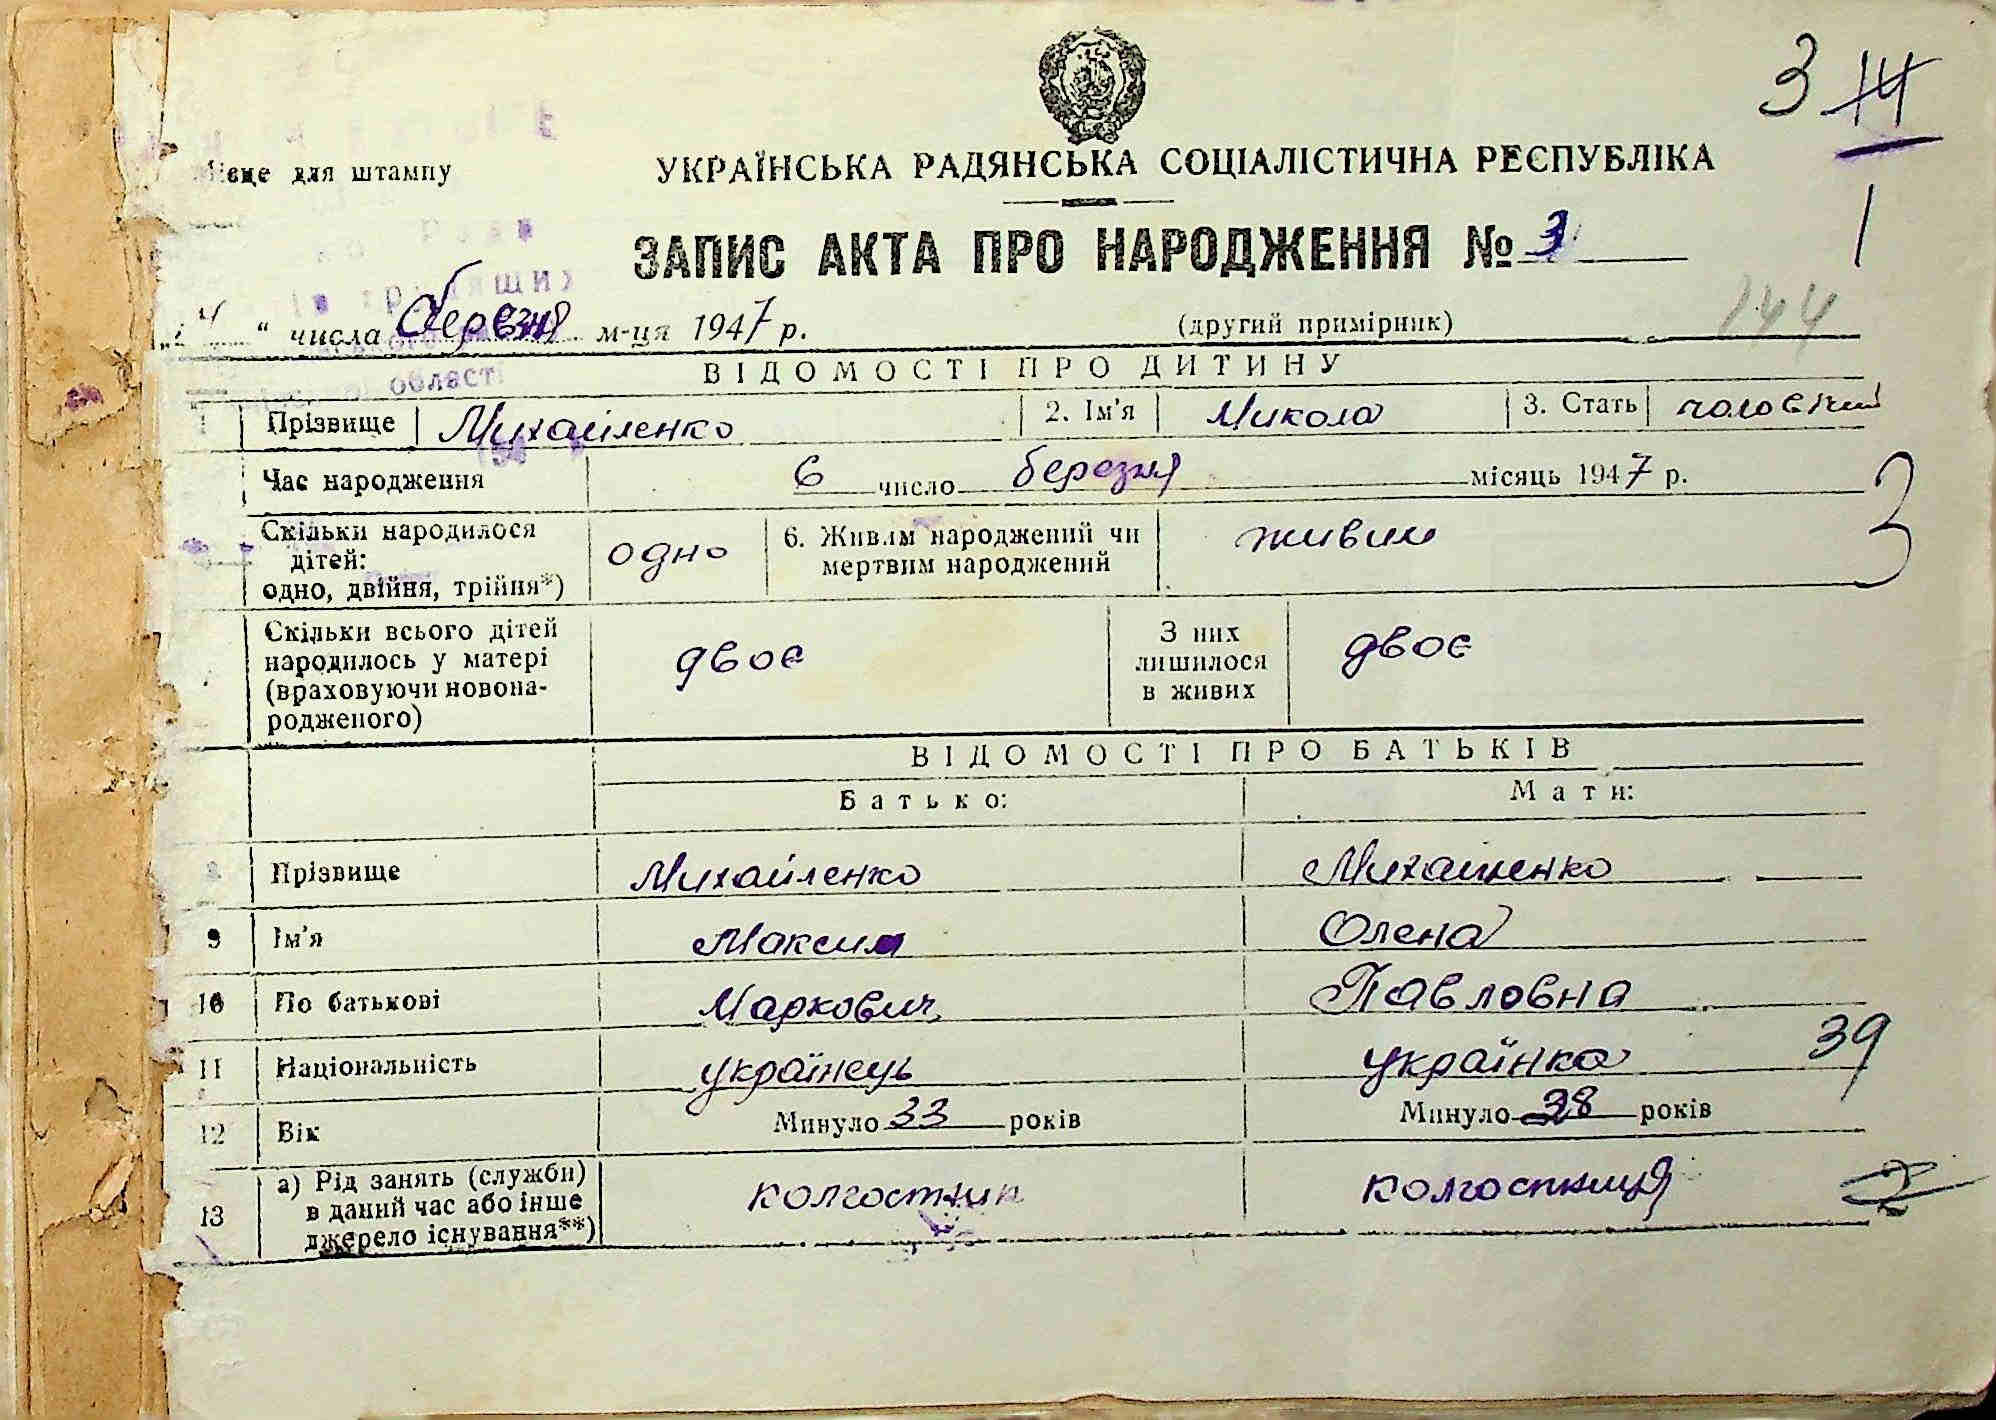 3 14
Місце для штампу
УКРАЇНСЬКА РАДЯНСЬКА СОЦІАЛІСТИЧНА РЕСПУБЛІКА
1
ЗАПИС АКТА ПРО НАРОДЖЕННЯ № 3
трудящих
" числа березня м-ця 1947 р.
(другий примірник)
144
області
ВІДОМОСТІ ПРО ДИТИНУ
1 Прізвище Михайленко 2. Ім'я Микола 3. Стать чоловічий
Час народження 6 число березня місяць 1947 р.
3
Скільки народилося дітей: одно, двійня, трійня*) одно 6. Живим народжений чи мертвим народжений живим
Скільки всього дітей народилось у матері (враховуючи новонародженого) двоє З них лишилося в живих двоє
ВІДОМОСТІ ПРО БАТЬКІВ
Батько: Мати:
8 Прізвище Михайленко Михайленко
9 Ім'я Максим Олена
10 По батькові Маркович Павловна
11 Національність українець українка
39
12 Вік Минуло 33 років Минуло 38 років
13 а) Рід занять (служби) в даний час або інше джерело існування**) колгоспник колгоспниця
2